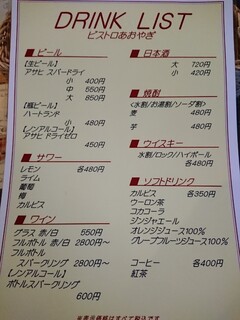 DRINK LIST
ビストロあおやぎ
■ビール
【生ビール】
アサヒ スパードライ
小 400円
中 550円
大 850円
【瓶ビール】
ハートランド
小 480円
【ノンアルコール】
アサヒ ドライゼロ
450円
■サワー
レモン 各480円
ライム
葡萄
梅
カルピス
■ワイン
グラス 赤/白 550円
フルボトル 赤/白 2800円～
フルボトル
スパークリング 2800円～
【ノンアルコール】
ボトルスパークリング
600円
■日本酒
大 720円
小 420円
■焼酎
<水割/お湯割/ソーダ割>
麦 480円
芋 480円
■ウイスキー
水割/ロック/ハイボール
各480円
■ソフトドリンク
カルピス 各350円
ウーロン茶
コカコーラ
ジンジャエール
オレンジジュース100%
グレープフルーツジュース100%
コーヒー 各400円
紅茶
※表示価格はすべて税込です